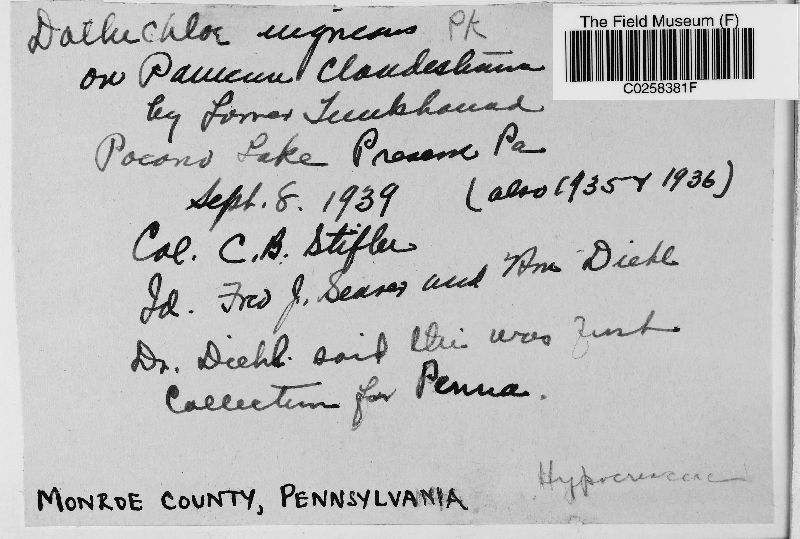 Dothichloe nigricans Pk
on Panicum Clandestinum
by Lower Tunkhannad
Pocono Lake Preserve Pa
Sept. 8. 1939 (also 1935 & 1936)
Col. C. B. Stifler
Id. Fred J. Seaver and Wm Diehl
Dr. Diehl said this was first
Collection for Penna.
Hypocreaceae
MONROE COUNTY, PENNSYLVANIA
The Field Museum (F)
C0258381F